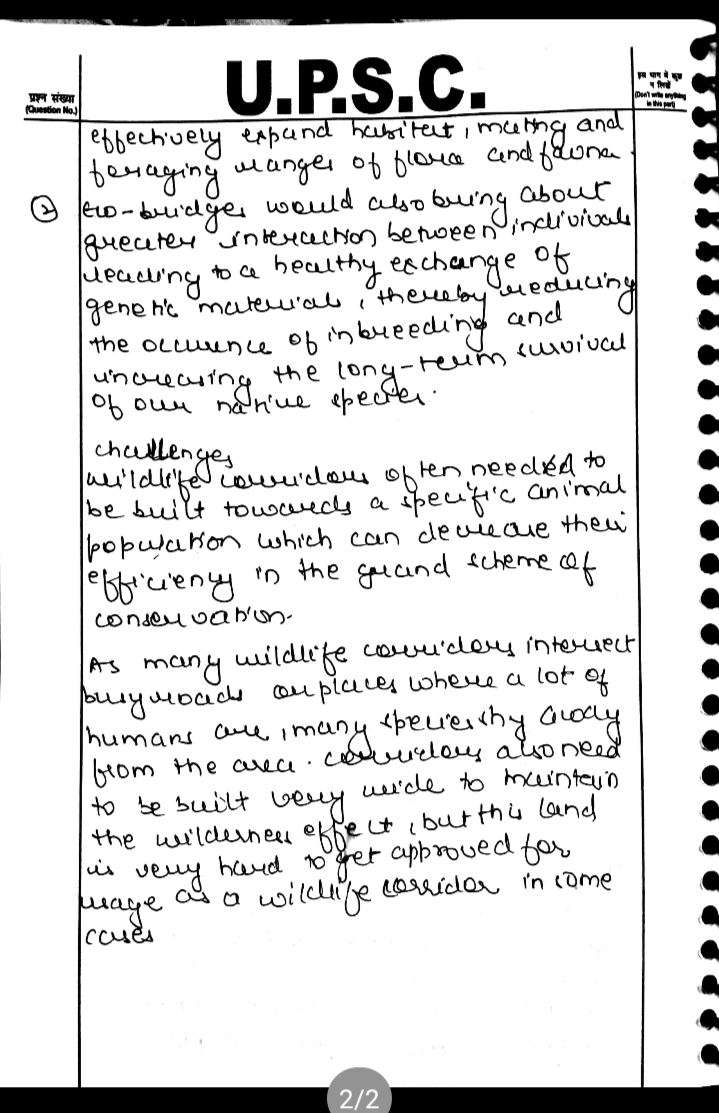 U.P.S.C.
प्रश्न संख्या
(Question No.)
इस भाग में कुछ
न लिखें
(Don't write anything
in this part)
effectively expand habitat, mating and
foraging ranges of flora and fauna.
② eco-bridges would also bring about
greater interaction between indivivals
leading to a healthy exchange of
genetic material, thereby reducing
the occurence of inbreeding and
increasing the long-term survival
of our native species.
challenges
wildlife corridors often needed to
be built towards a specific animal
population which can decrease their
efficiency in the grand scheme of
conservation.
As many wildlife corridors intersect
busy roads or places where a lot of
humans are, many species shy away
from the area. corridors also need
to be built very wide to maintain
the wilderness effect, but this land
is very hard to get approved for
usage as a wildlife corridor in some
cases
2/2